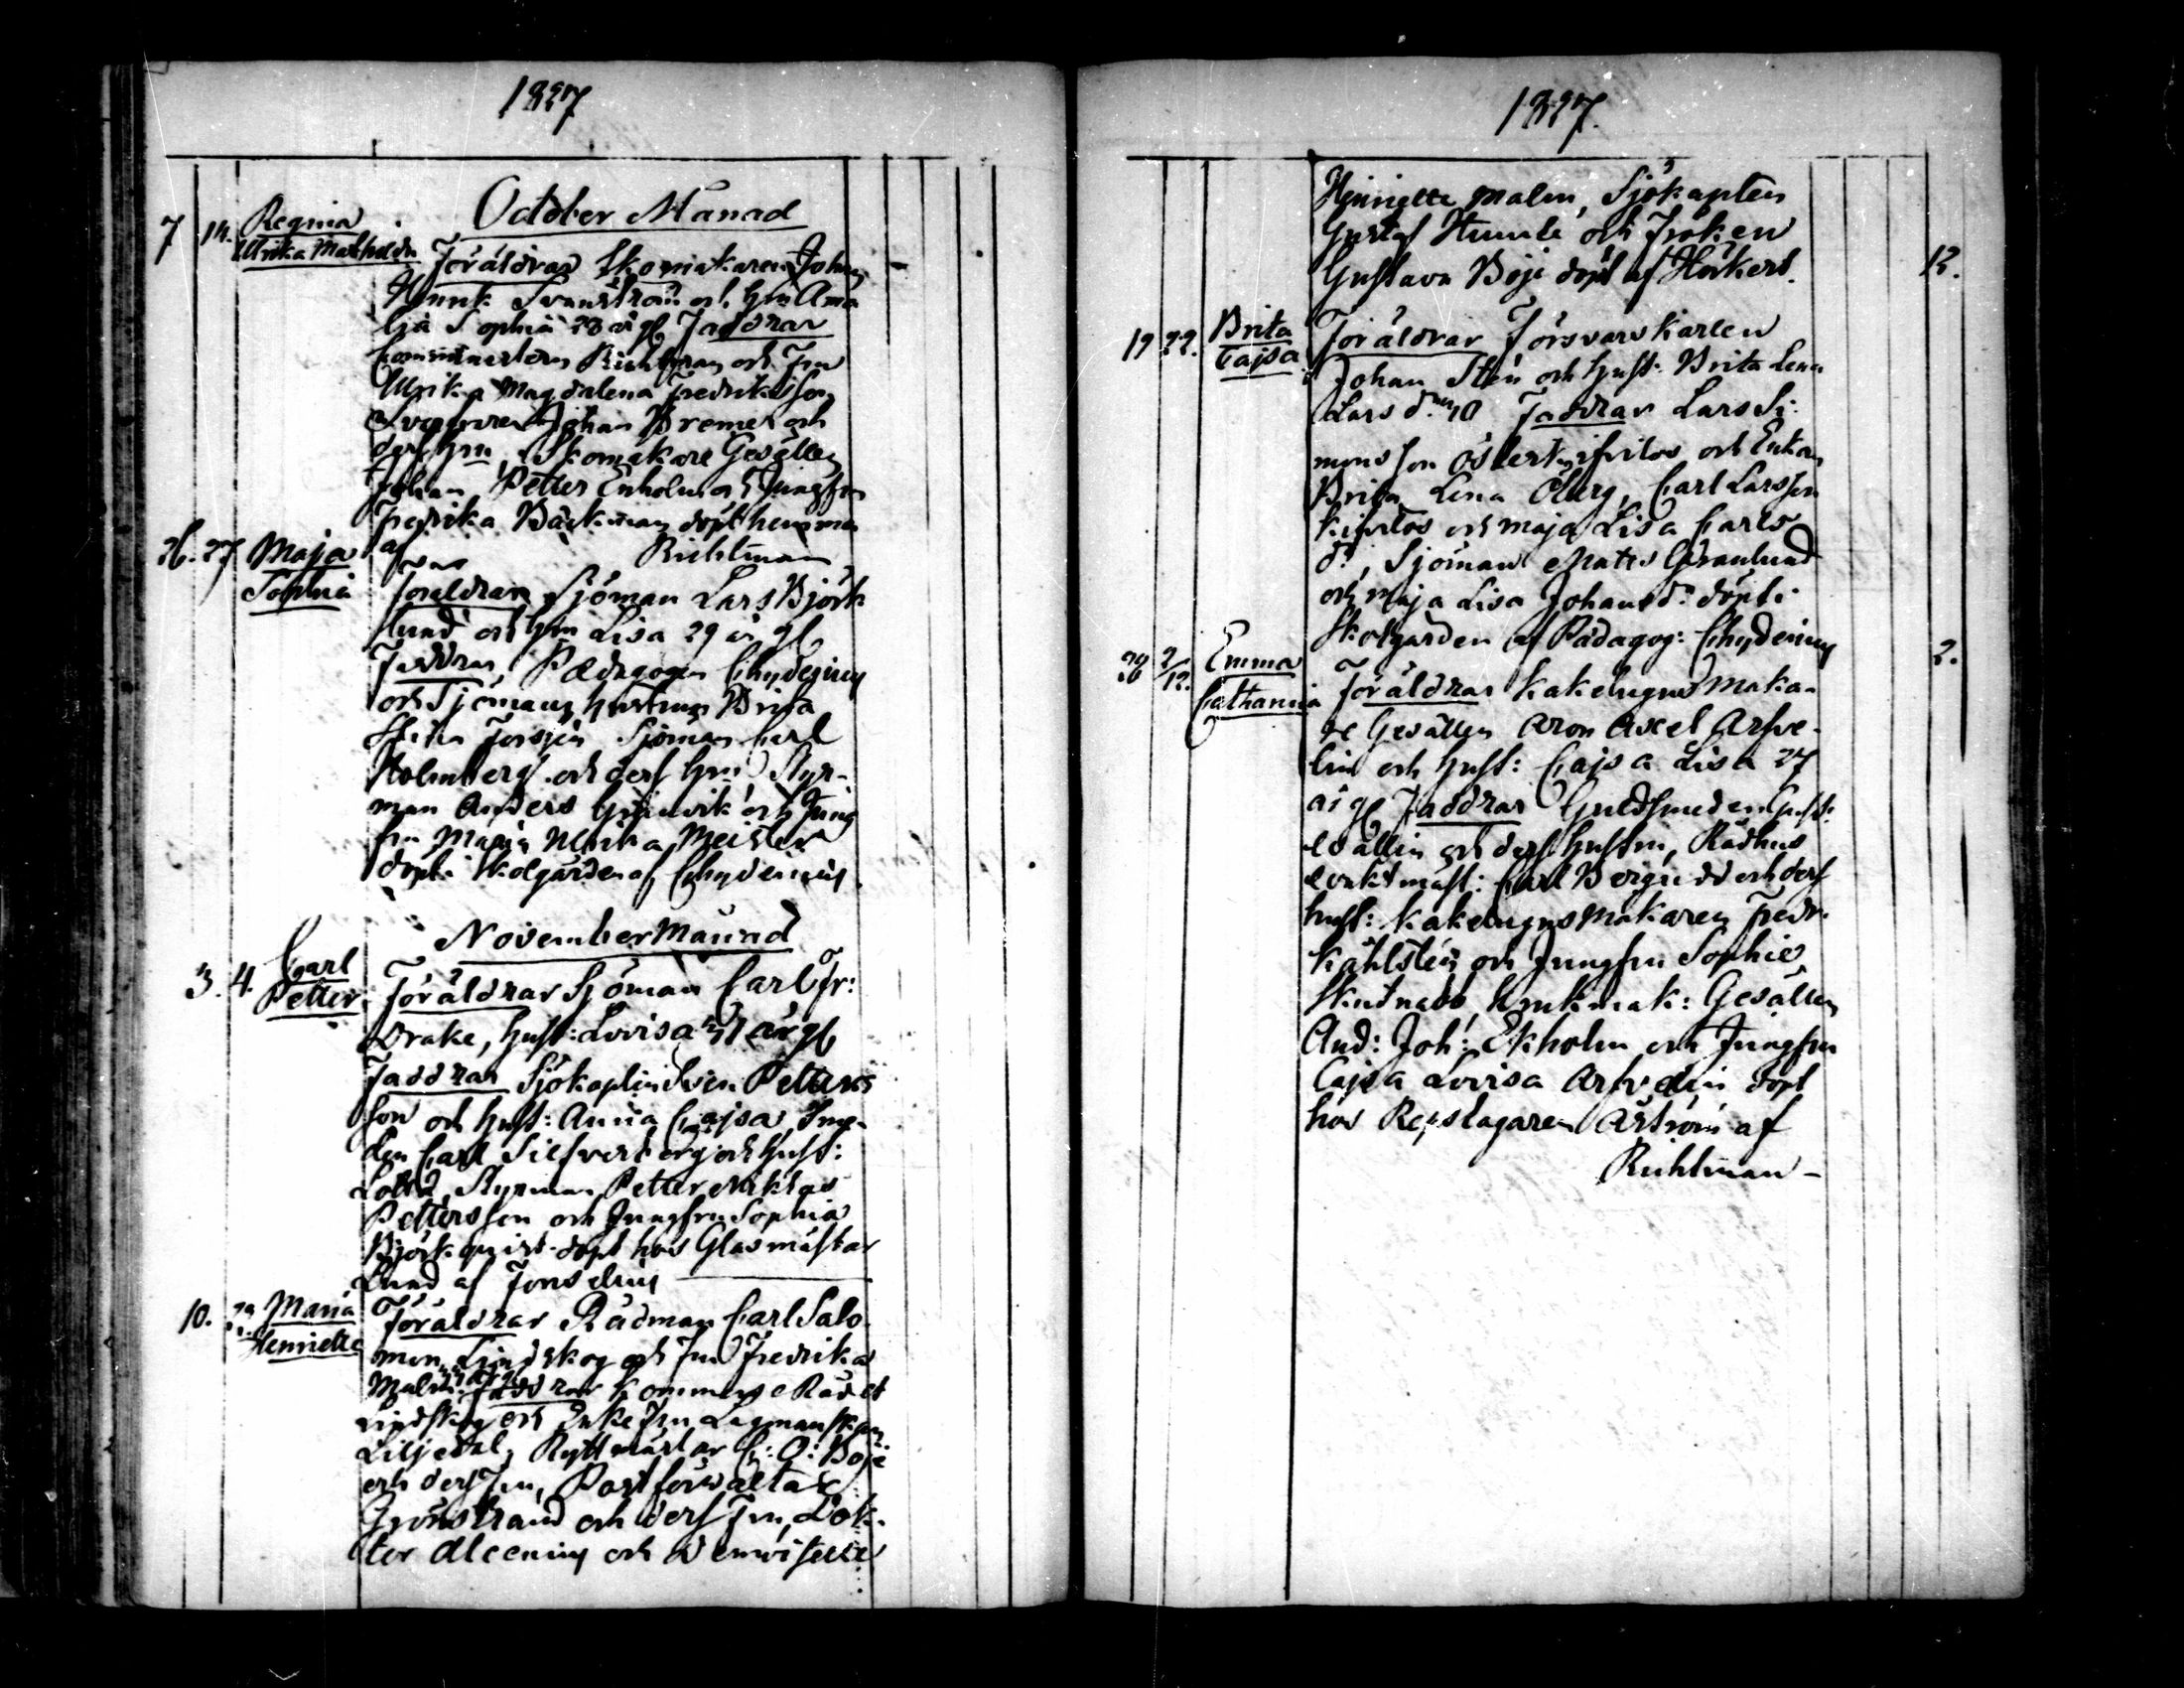 1827
October Månad
7 14. Regina
Ulrika Mathilda Föräldrar Skomakaren Johan
Henrik Svanström och hru Ama
lia Sophia 28 år gl Faddrar
Ulrika Magdalena Fredriksson
Johan Bremer och
ders hru, Skomakare Gesällen
Johan Petter Enholm och Jungfru
Fredrika Bäckman döpt hemma
af Richtman
26. 27 Maja
Sophia Föräldrar Sjöman Lars Björk
lund och hru Lisa 29 år gl
Faddrar Pædagogen Chydenius
och Sjömans hustrun Brita
Sjöman Carl
Holmberg och ders hru Styr-
man Anders Grönvik och Jung
fru Maria Ulrika Meisler
döpt i Skolgården af Chydenius.
November Månad
3. 4. Carl
Petter Föräldrar Sjöman Carl Fr:
Drake, hust: Lovisa 31 år gl
Faddrar Sjökapten Sven Petters
son och hust: Anna Cajsa, Sme-
den Carl Silfverberg och hust:
Lovisa, Styrman Petter Niklas
Pettersson och Jungfru Sophia
Björkqvist döpt hos Glasmästar
Lund af Forselius
10. 23. Maria
Henrietta Föräldrar Rådman Carl Salo
mon Lindskog och Fru Fredrika
Malm Faddrar Kommerse Rådet
Lindskog och Enke Fru Lagmanskan
Liljedal, Ryttmästar C: O: Boje
och ders Fru, Postförvaltar
Grönstrand och ders Fru, Dok-
tor Alcenius och Demoiselle
1827.
Henriette Malm, Sjökapten
Gustaf Humle och Fröken
Gustava Boje döpt af Höckert. 12.
19 22. Brita
Cajsa Föräldrar Försvarskarlen
Johan Sten och hust: Brita Lena
Larsdr 40 Faddrar Lars Si-
monsson Österkifvilos och Enkan
Brita Lena Öberg, Carl Larsson
Kifvilos och Maja Lisa Carls
dr, Sjöman Matts Granlund
och Maja Lisa Johansdr döpt i
Skolgården af Pædagog: Chydenius
28 2/12. Emma
Catharina Föräldrar Kakelugnsmaka- 2.
re Gesällen Aron Axel Arfve-
lin och hust: Cajsa Lisa 27
år gl Faddrar Guldsmeden Gust:
Wallin och ders hustru, Rådhus
vaktmäst: Carl Bergudd och ders
hust: Kakelugnsmakaren Fredr.
Kahlsten och Jungfru Sophie
Skutnabb, Krukmak: Gesällen
And: Joh: Ekholm och Jungfru
Cajsa Lovisa Arfvelin döpt
hos Repslagaren Åström af
Richtman –